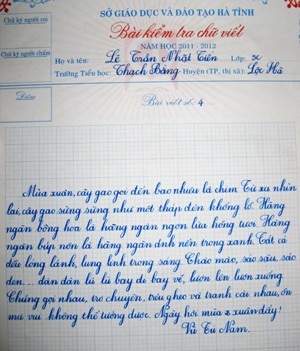 Chữ ký người coi
SỞ GIÁO DỤC VÀ ĐÀO TẠO HÀ TĨNH
Bài kiểm tra chữ viết
Chữ ký người chấm
NĂM HỌC 2011 - 2012
Họ và tên: Lê Trần Nhật Tiến Lớp:
Trường Tiểu học: Thạch Bằng Huyện (TP, thị xã): Lộc Hà
Điểm
Bài viết số: 4
Mùa xuân, cây gạo gọi đến bao nhiêu là chim. Từ xa nhìn
lại, cây gạo sừng sững như một tháp đèn khổng lồ. Hàng
ngàn bông hoa là hàng ngàn ngọn lửa hồng tươi. Hàng
ngàn búp nõn là hàng ngàn ánh nến trong xanh. Tất cả
đều lóng lánh, lung linh trong sáng. Chào mào, sáo sậu, sáo
đen,... đàn đàn lũ lũ bay đi bay về, lượn lên lượn xuống.
Chúng gọi nhau, trò chuyện, trêu ghẹo và tranh cãi nhau, ồn
mà vui không thể tưởng được. Ngày hội mùa xuân đấy!
Vũ Tú Nam.